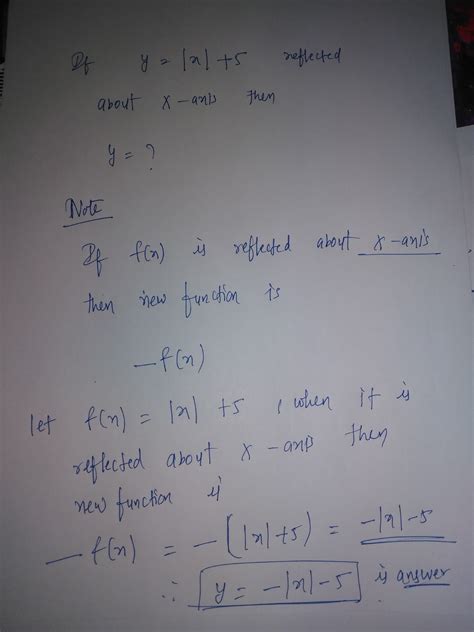 If y = |x| + 5 reflected
about x-axis then
y = ?
Note
If f(x) is reflected about x-axis
then new function is
—f(x)
let f(x) = |x| + 5 , when it is
reflected about x-axis then
new function is
—f(x) = —(|x|+5) = —|x|—5
∴ y = —|x|—5 is answer